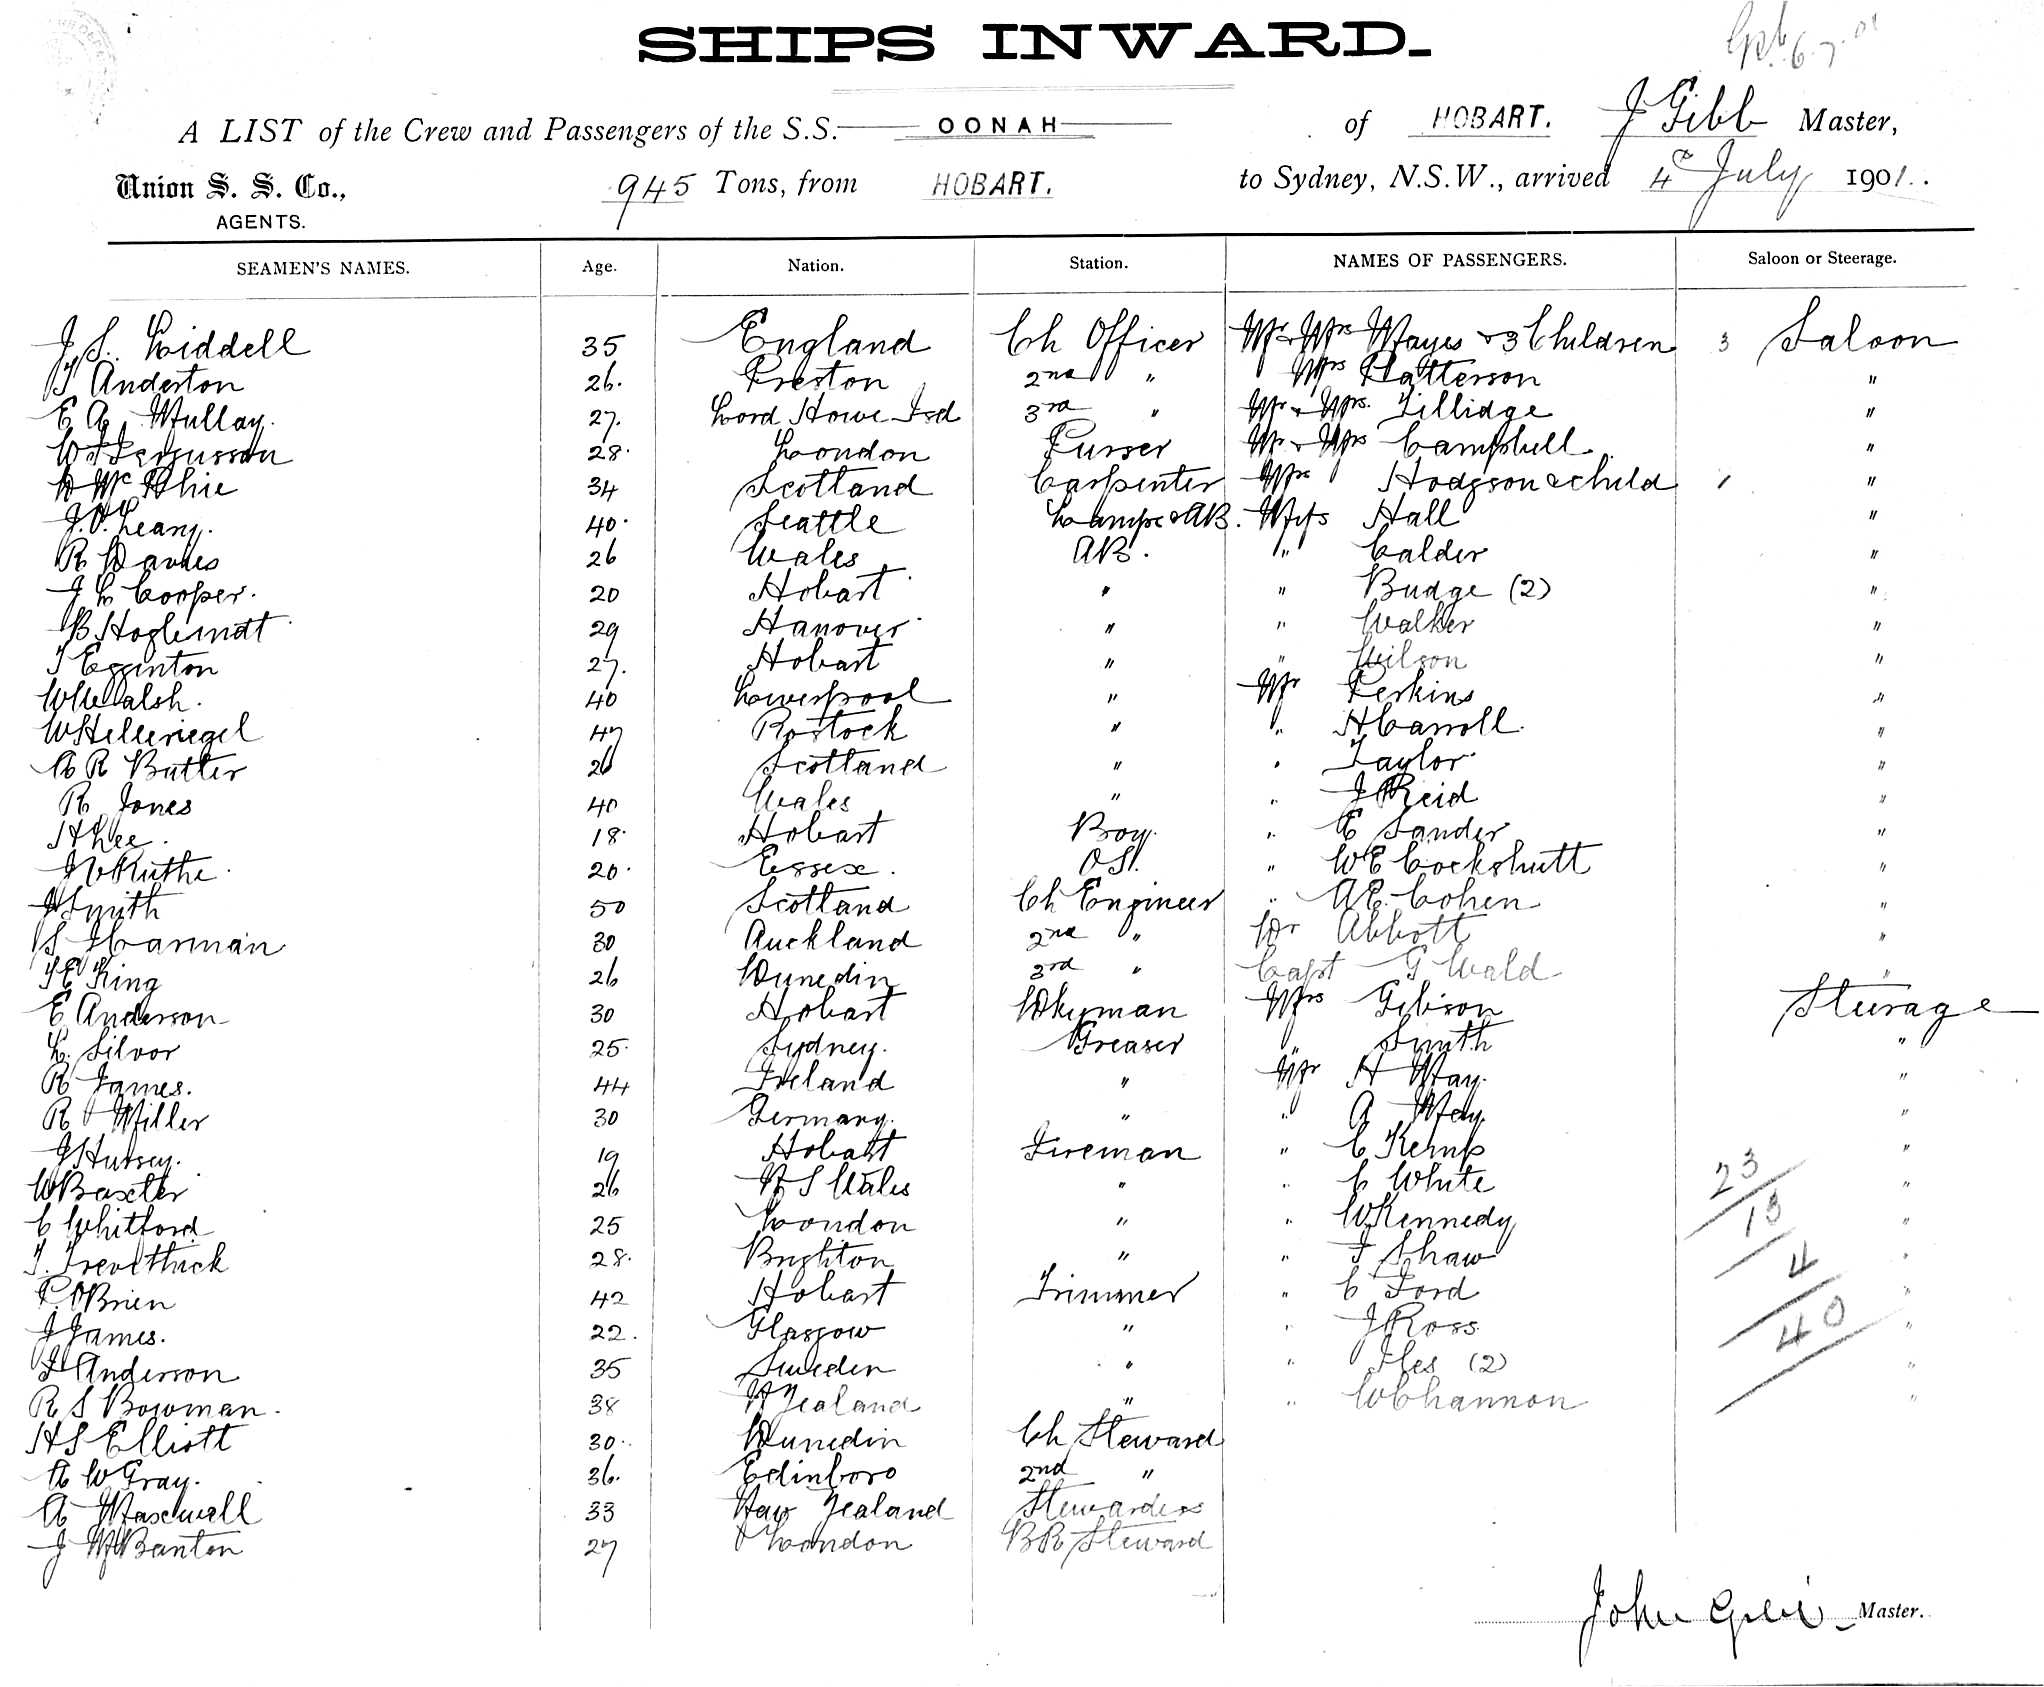 SHIPS INWARD.
Gpb 6.7.01
A LIST of the Crew and Passengers of the S.S. OONAH of HOBART. J Gibb Master,
Union S. S. Co., AGENTS. 945 Tons, from HOBART. to Sydney, N.S.W., arrived 4th July 1901.
SEAMEN'S NAMES. Age. Nation. Station. NAMES OF PASSENGERS. Saloon or Steerage.
J S. Liddell 35 England Ch Officer Mr & Mrs Mayes & 3 Children 3 Saloon
T Anderton 26. Preston 2nd " Mrs Patterson "
E A Mullay. 27. Lord Howe Isd 3rd " Mr & Mrs. Tillidge "
W F Fergusson 28. London Purser Mr & Mrs Campbell. "
D McPhie 34 Scotland Carpenter Mrs Hodgson & child / "
J. O. Leary. 40. Seattle Lamps & AB. Miss Hall "
R Davies 26 Wales AB. " Calder "
J L Cooper. 20 Hobart " " Budge (2) "
B 29 Hanover " " Walker "
T Egginton 27. Hobart " " Wilson "
W Walsh. 40 Liverpool " Mr Perkins "
W Helleriegel 47 Rostock " " H Carroll. "
A R Butter 26 Scotland " " Taylor "
R Jones 40 Wales " " J Reid "
H Lee. 18. Hobart Boy. " E Sander "
J 20. Essex. OS. " W E Cockshutt "
J Smith 50 Scotland Ch Engineer " A E. Cohen "
S Harman 30 Auckland 2nd " Dr Abbott "
H E King 26 Dunedin 3rd " Capt G Wald "
E Anderson 30 Hobart Dkyman Mrs Gibson Steerage
L. Silvor 25. Sydney. Greaser " Smith "
R James. 44 Ireland " Mr H May. "
R Miller 30 Germany. " " A May. "
J Hursey. 19 Hobart Fireman " C Kemp "
W Baxter 26 N S Wales " " C White "
C Whitford 25 London " " W Kennedy "
T. Trevethick 28. Brighton " " F Shaw "
P. OBrien 42 Hobart Trimmer " C Ford "
J James. 22. Glasgow " " J Ross "
F Anderson 35 Sweden " " Iles (2) "
R S Bowman. 38 N Zealand " " W Channon "
H S Elliott 30. Dunedin Ch Steward
A W Gray. 36. Edinboro 2nd "
A Maxwell 33 New Zealand Stewardess
J M Banton 27 London BR Steward
23
13
4
40
John Gibb Master.